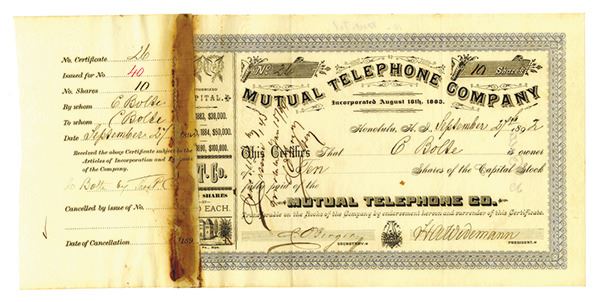 No. Certificate 26
Issued for No. 40
No. Shares 10
By whom E Bolte
To whom C Bolte
Date September 27
Received the above Certificate subject to the
Articles of Incorporation and
of the Company.
Bolte by
Cancelled by issue of No.
Date of Cancellation 189
CAPITAL.
1883, $30,000.
1884, $50,000.
1890, $100,000.
T. CO.
SHARES
EACH.
No. 26
10 Shares
MUTUAL TELEPHONE COMPANY
Incorporated August 16th, 1883.
Honolulu, H. I. September 27th 1892
This Certifies That C Bolte is owner
Ten Shares of the Capital Stock
paid of the
MUTUAL TELEPHONE CO.
on the Books of the Company by endorsement hereon and surrender of this Certificate.
SECRETARY.
H A Widemann
PRESIDENT.